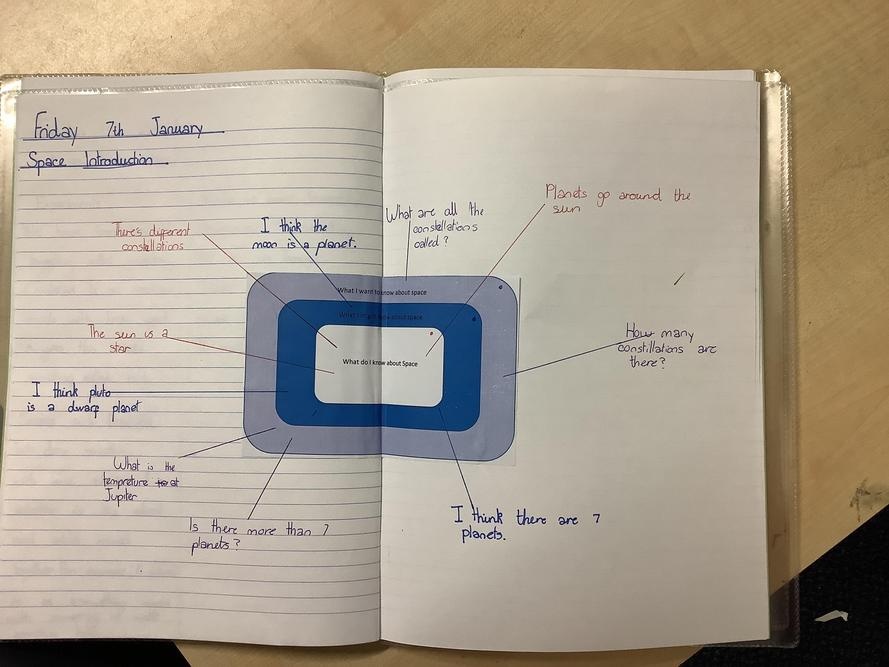 Friday 7th January
Space Introduction
There's different
constellations
I think the
moon is a planet.
What are all the
constellations
called?
Planets go around the
sun
What I want to know about space
What I might know about space
What do I know about Space
The sun is a
star
How many
constillations are
there?
I think pluto
is a dwarf planet
What is the
tempreture at
Jupiter
Is there more than 7
planets?
I think there are 7
planets.